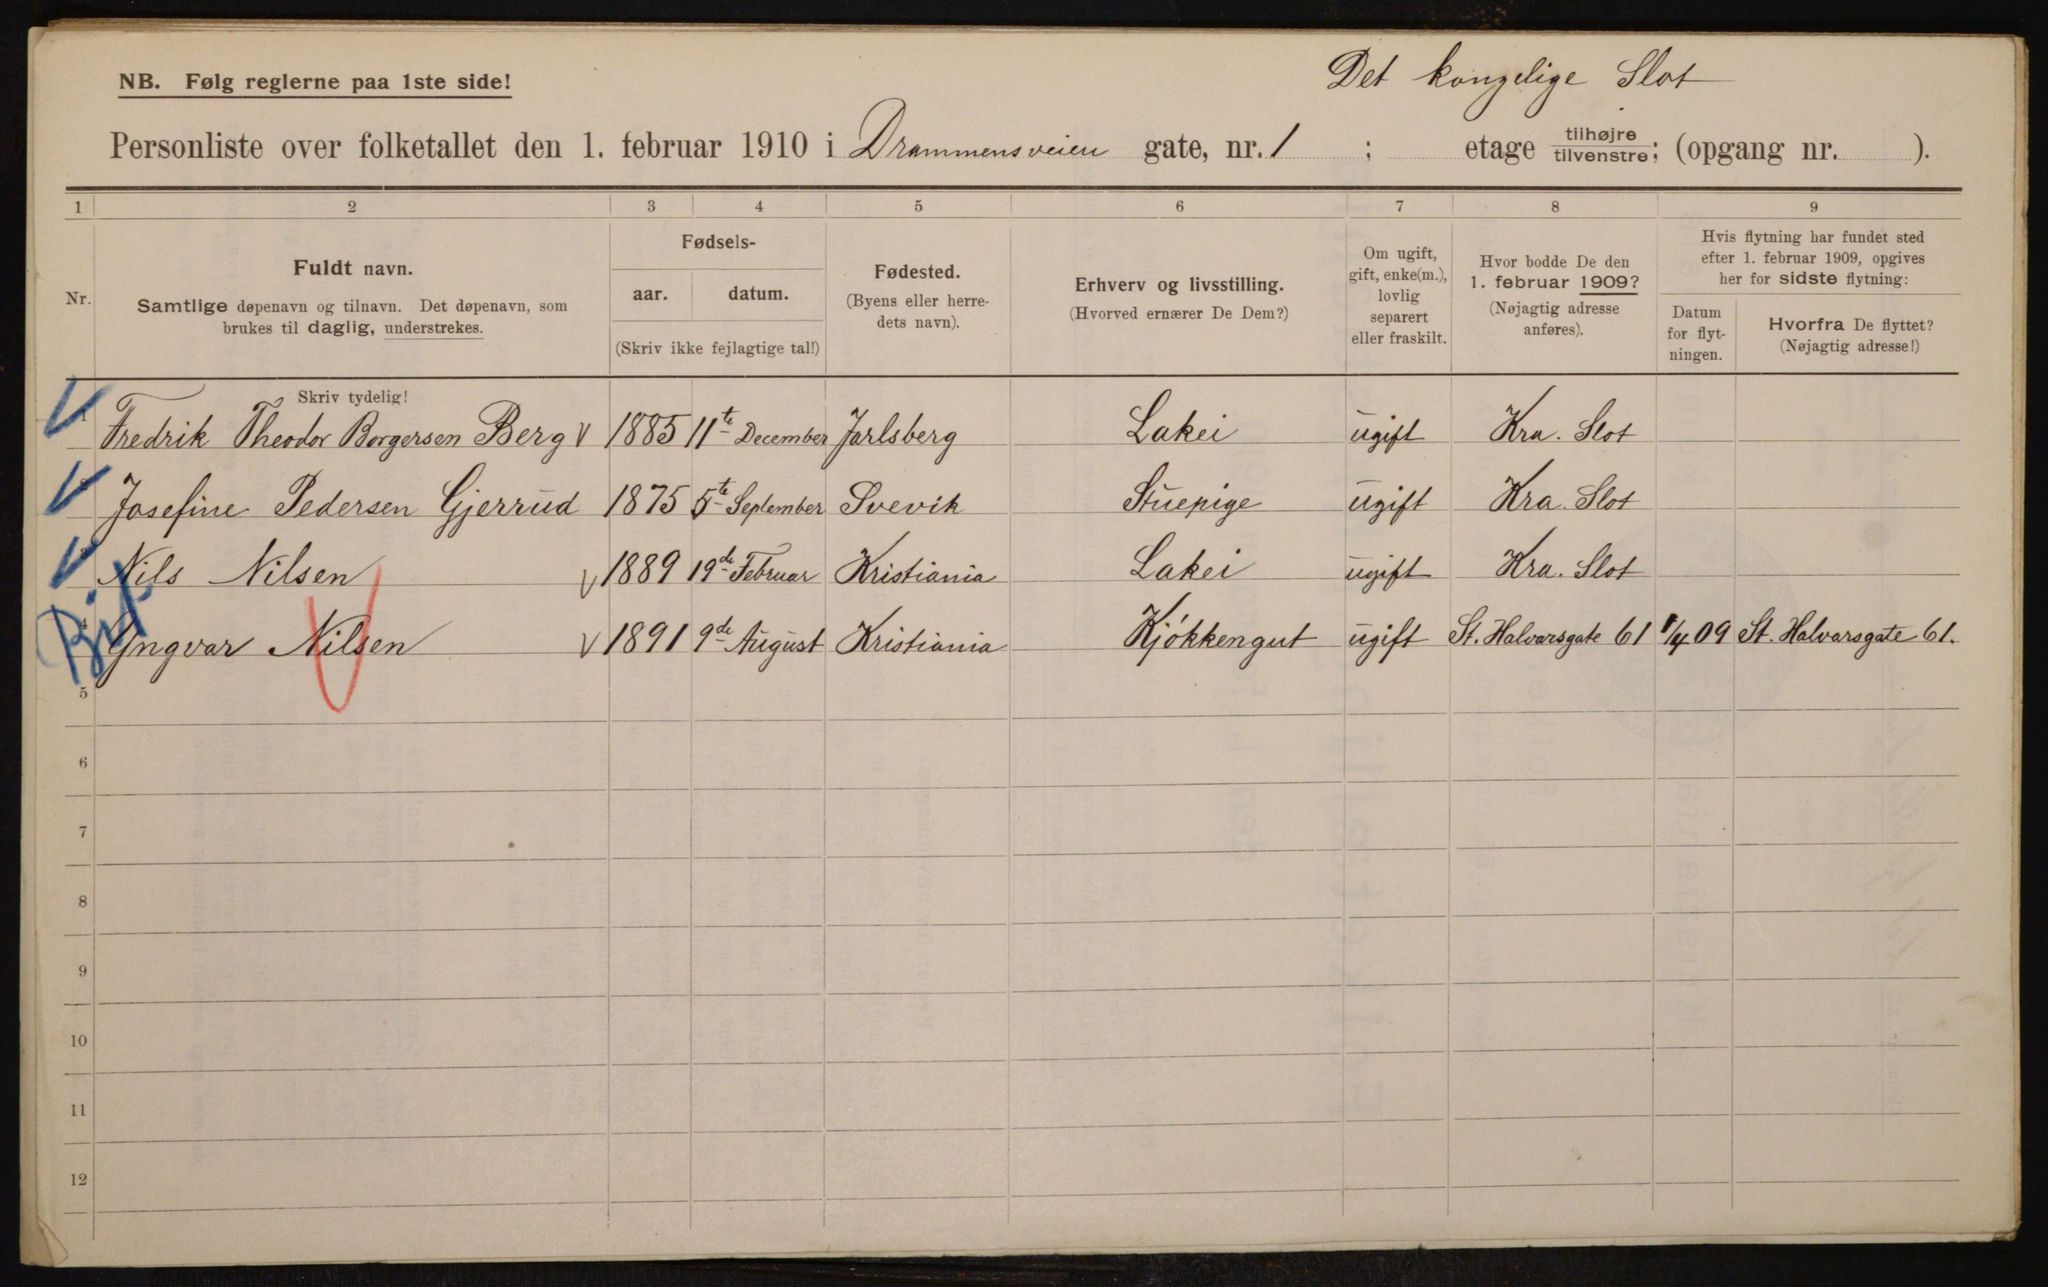 Det kongelige Slot
NB. Følg reglerne paa 1ste side!
Personliste over folketallet den 1. februar 1910 i Drammensveien gate, nr. 1 ; etage tilhøjre/tilvenstre; (opgang nr. ).
1 2 3 4 5 6 7 8 9
Nr.
Fuldt navn.
Samtlige døpenavn og tilnavn. Det døpenavn, som
brukes til daglig, understrekes.
Skriv tydelig!
Fødsels-
aar. datum.
(Skriv ikke fejlagtige tal!)
Fødested.
(Byens eller herre-
dets navn).
Erhverv og livsstilling.
(Hvorved ernærer De Dem?)
Om ugift,
gift, enke(m.),
lovlig
separert
eller fraskilt.
Hvor bodde De den
1. februar 1909?
(Nøjagtig adresse
anføres).
Hvis flytning har fundet sted
efter 1. februar 1909, opgives
her for sidste flytning:
Datum
for flyt-
ningen.
Hvorfra De flyttet?
(Nøjagtig adresse!)
1 Fredrik Theodor Borgersen Berg V 1885 11te December Jarlsberg Lakei ugift Kra. Slot
Josefine Pedersen Gjerrud 1875 5te September Svevik Stuepige ugift Kra. Slot
Nils Nilsen V 1889 19de Februar Kristiania Lakei ugift Kra. Slot
4 Yngvar Nilsen V 1891 9de August Kristiania Kjøkkengut ugift St. Halvarsgate 61 1/4 09 St. Halvarsgate 61.
5
6
7
8
9
10
11
12